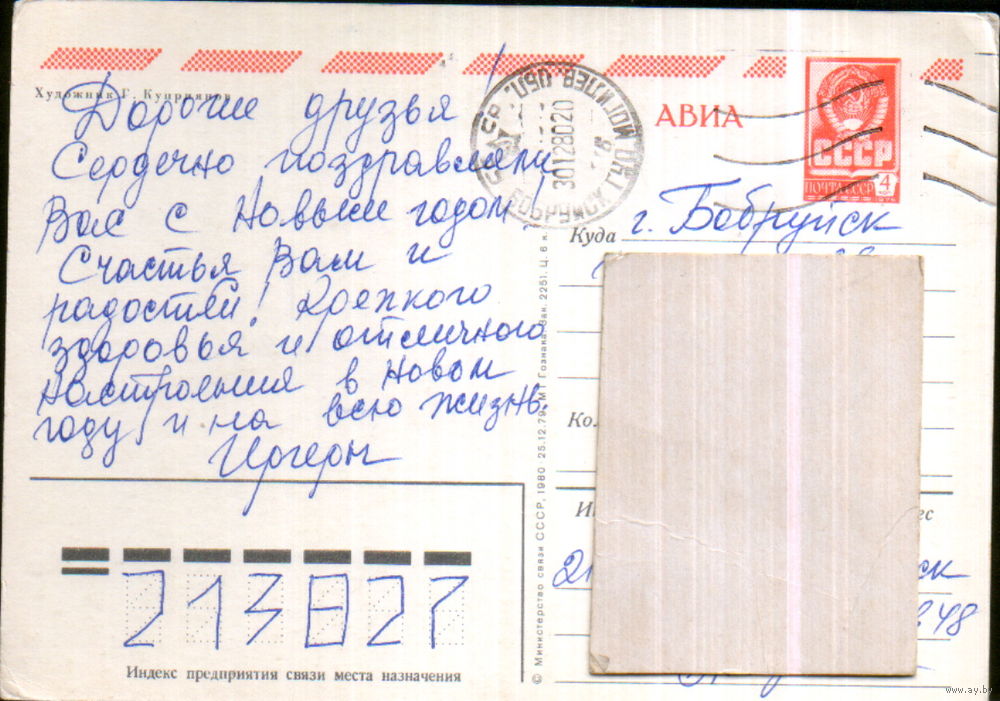 Художник Г. Куприянов
Дорогие друзья!
Сердечно поздравляем
Вас с Новым годом!
Счастья Вам и
радостей! Крепкого
здоровья и отличного
настроения в новом
году и на всю жизнь.
АВИА
СССР
ПОЧТА СССР 4
30 12 80 20
БОБРУЙСК
Куда г. Бобруйск
213827
Индекс предприятия связи места назначения
© Министерство связи СССР, 1980 25.12.79. МТ Гознака. Зак. 2251. Ц. 6 к.
48
www.ay.by